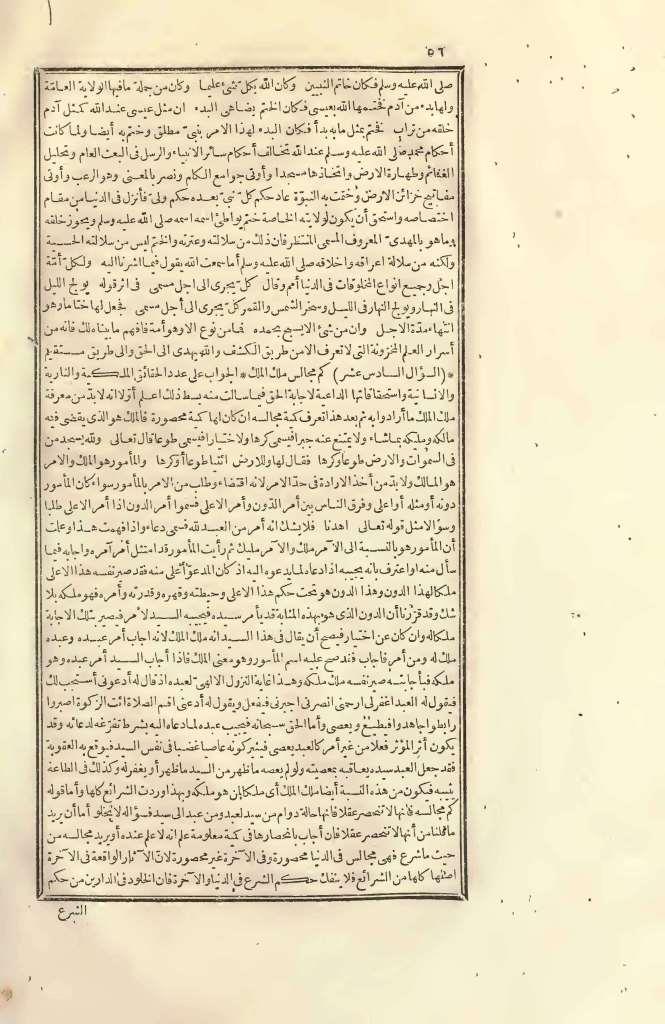 ٥٦
صلى الله عليه وسلم فكان خاتم النبيين وكان الله بكل شئ عليما وكان من جملة ما فيها الولاية العامّة
ولها بدء من آدم فختمها الله بعيسى فكان الختم يضاهى البدء ان مثل عيسى عند الله كمثل آدم
خلقه من تراب فختم بمثل ما به بدأ فكان البدء لهذا الامر بنبىّ مطلق وختم به أيضا ولما كانت
أحكام محمد صلى الله عليه وسلم عند الله تخالف أحكام سائر الانبياء والرسل فى البعث العام وتحليل
الغنائم وطهارة الارض واتخاذها مسجدا وأوتى جوامع الكلم ونصر بالمعنى وهو الرعب وأوتى
مفاتيح خزائن الارض وختمت به النبوّة عاد حكم كل نبىّ بعده حكم ولىّ فأنزل فى الدنيا من مقام
اختصاصه واستحق أن يكون لولايته الخاصة ختم يواطئ اسمه اسمه صلى الله عليه وسلم ويحوز خلقه
وما هو بالمهدىّ المعروف المسمى المنتظر فان ذلك من سلالته وعترته والختم ليس من سلالته الحسية
ولكنه من سلالة اعراقه واخلاقه صلى الله عليه وسلم أما سمعت الله يقول فيما اشرنا اليه ولكل أمّة
اجل وجميع انواع المخلوقات فى الدنيا أمم وقال كل يجرى الى اجل مسمى فى اثر قوله يولج الليل
فى النهار ويولج النهار فى الليل وسخر الشمس والقمر كل يجرى الى أجل مسمى فجعل لها ختاما وهو
انتهاء مدّة الاجل وان من شئ الا يسبح بحمده فما من نوع الا وهو أمة فافهم ما بيناه لك فانه من
أسرار العلم المخزونة التى لا تعرف الا من طريق الكشف والله يهدى الى الحق والى طريق مستقيم
* (السؤال السادس عشر) كم مجالس ملك الملك * الجواب على عدد الحقائق الملكية والنارية
والانسانية واستحقاقاتها الداعية لاجابة الحق فيما سألت منه بسط ذلك اعلم أولا انه لا بدّ من معرفة
ملك الملك ما أرادوا به ثم بعد هذا تعرف كمية مجالسه ان كان لها كمية محصورة فالملك هو الذى يقضى فيه
مالكه ومليكه بما شاء ولا يمتنع عنه جبرا فيسمى كرها ولا اختيارا فيسمى طوعا قال تعالى ولله يسجد من
فى السموات والارض طوعا وكرها فقال لها وللارض ائتيا طوعا أو كرها والمأمور هو الملك والامر
هو المالك ولا بدّ من أخذ الارادة فى حدّ الامر لانه اقتضاء وطلب من الامر بالمأمور سواء كان المأمور
دونه أو مثله أو أعلى وفرق الناس بين أمر الدون وأمر الاعلى فسموا أمر الدون اذا أمر الاعلى طلبا
وسؤالا مثل قوله تعالى اهدنا فلا يشك انه أمر من العبد لله فسمى دعاء واذا فهمت هذا وعلمت
أن المأمور هو بالنسبة الى الآمر ملك والآمر مليك ثم رأيت المأمور قد امتثل أمر آمره واجابه فيما
سأل منه او اعترف بانه يجيبه اذا دعاه لما يدعوه اليه اذ كان المدعوّ أعلى منه فقد صير نفسه هذا الاعلى
ملكا لهذا الدون وهذا الدون هو تحت حكم هذا الاعلى وحيطته وقهره وقدرته وأمره فهو ملكه بلا
شك وقد قرّرنا أن الدون الذى هو بهذه المثابة قد يأمر سيده فيجيبه السيد لامره فيصير بتلك الاجابة
ملكا له وان كان عن اختيار فيصح أن يقال فى هذا السيد انه ملك الملك لانه اجاب أمر عبده وعبده
ملك له ومن أمر فاجاب فقد صح عليه اسم المأمور وهو معنى الملك فاذا أجاب السيد أمر عبده وهو
ملكه فباجابته صير نفسه ملك ملكه وهذا غاية النزول الالهىّ لعبده اذ قال له أدعونى أستجب لك
فيقول له العبد اغفر لى ارحمنى انصرنى اجبرنى فيفعل ويقول له أدعنى اقم الصلاة ائت الزكوة اصبروا
رابطوا جاهدوا فيطيع ويعصى وأما الحق سبحانه فيجيب عبده لما دعاه اليه بشرط تفرّغه لدعائه وقد
يكون أثر المؤثر فعلا من غير أمر كالعبد يعصى فيثير كونه عاصيا غضبا فى نفس السيد فيوقع به العقوبة
فقد جعل العبد سيده يعاقبه بمعصيته ولو لم يعصه ما ظهر من السيد ما ظهر أو يغفر له وكذلك فى الطاعة
يثيبه فيكون من هذه النسبة أيضا ملك الملك أى ملكا لمن هو ملكه وبهذا وردت الشرائع كلها وأما قوله
كم مجالسه فانها لا تنحصر عقلا فانها حالة دوام من سيد لعبد ومن عبد الى سيد فسؤاله لا يخلو أما أن يريد
ما قلنا من أنها لا تنحصر عقلا فان أجاب بانحصارها فى كمية معلومة علم انه لا علم عنده أو يريد مجالسه من
حيث ما شرع فهى مجالس فى الدنيا محصورة وفى الآخرة غير محصورة لانّ الآثار الواقعة فى الآخرة
اصلها كلها من الشرائع فلا ينفك حكم الشرع فى الدنيا والآخرة فان الخلود فى الدارين من حكم
الشرع